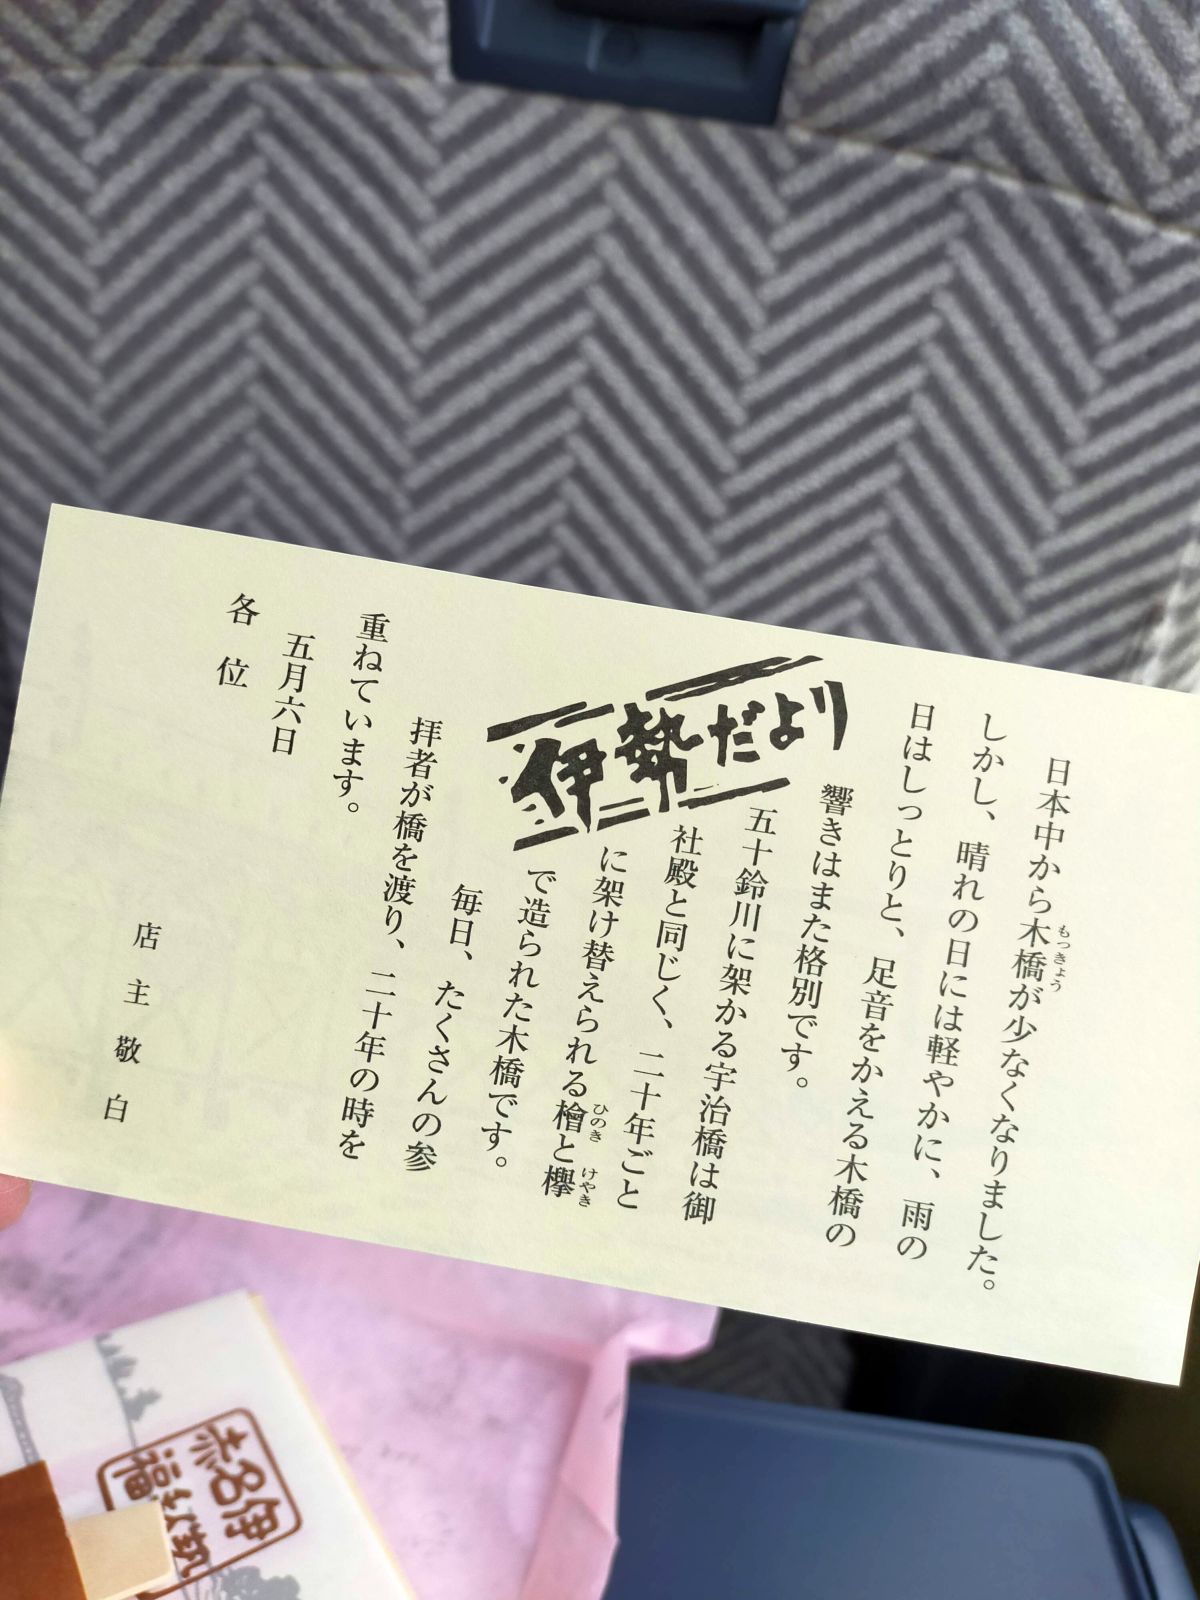 日本中から木橋が少なくなりました。
もっきょう
しかし、晴れの日には軽やかに、雨の
日はしっとりと、足音をかえる木橋の
響きはまた格別です。
伊勢だより
五十鈴川に架かる宇治橋は御
社殿と同じく、二十年ごと
に架け替えられる檜と欅
ひのき けやき
で造られた木橋です。
毎日、たくさんの参
拝者が橋を渡り、二十年の時を
重ねています。
五月六日
各位
店主敬白
伊勢
名物
赤福